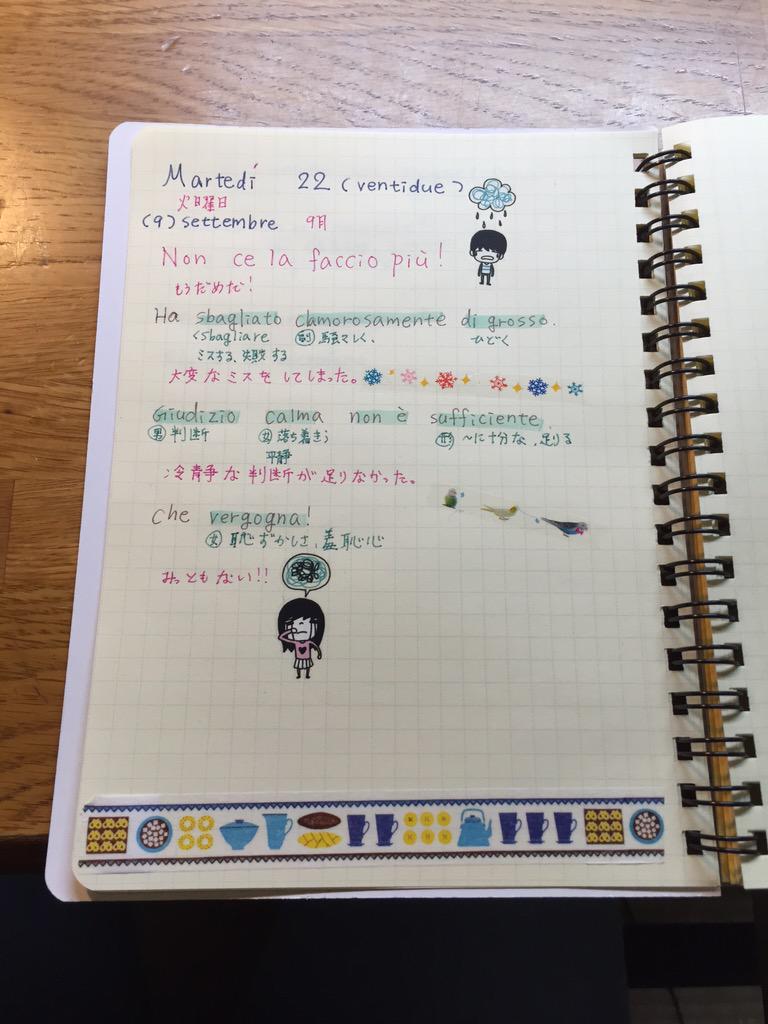 Martedí 22 (ventidue)
火曜日
(9) settembre 9月
Non ce la faccio più!
もうだめだ!
Ha sbagliato clamorosamente di grosso.
<sbagliare 副 騒々しく、 ひどく
ミスする、失敗する
大変なミスをしてしまった。
Giudizio calma non è sufficiente.
男 判断 女 落ち着き 形 〜に十分な、足りる
平静
冷静な判断が足りなかった。
Che vergogna!
女 恥ずかしさ、羞恥心
みっともない!!